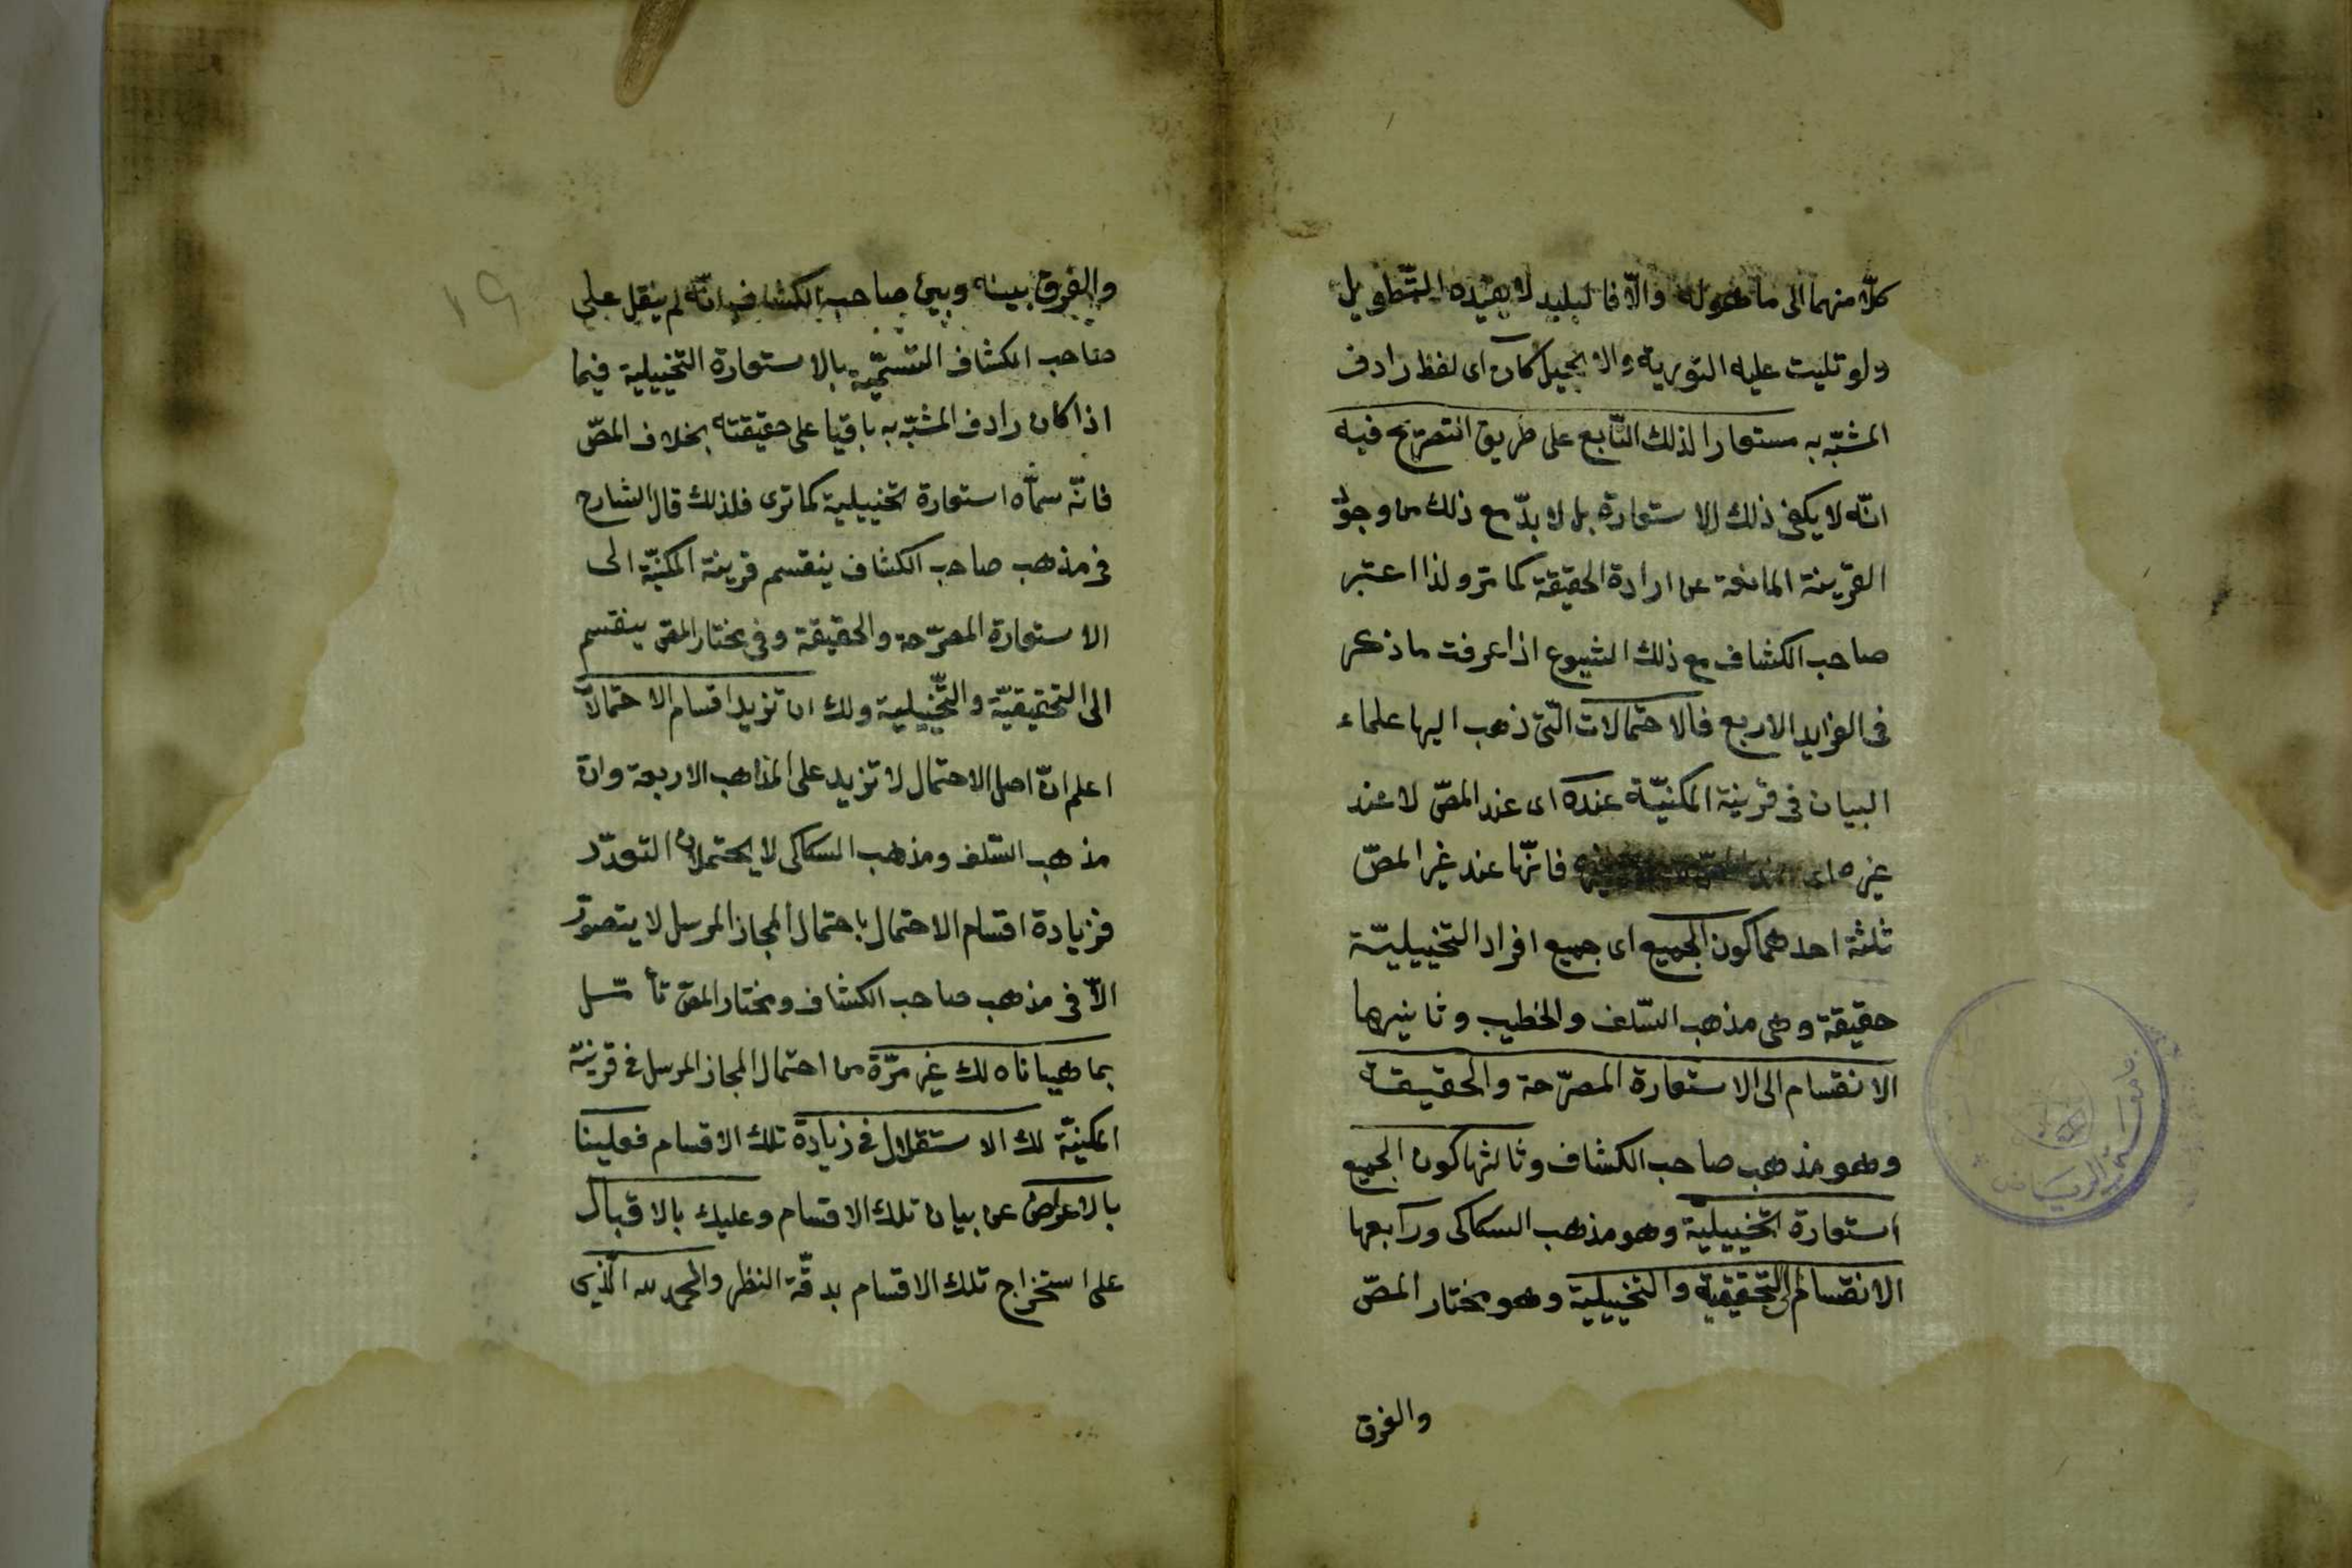 كلّا منهما الى ما هو له والّا فالبليد لا يفيده التّطويل
ولو تليت عليه التورية والانجيل كان اى لفظ رادف
المشبّه به مستعارا لذلك التّابع على طريق التصريح فيه
انّه لا يكفى ذلك الاستعارة بل لا بدّ مع ذلك من وجود
القرينة المانعة عن ارادة الحقيقة كما مرّ ولذا اعتبر
صاحب الكشاف مع ذلك الشيوع اذا عرفت ما ذكر
فى الفرايد الاربع فالاحتمالات الّتى ذهب اليها علماء
البيان فى قرينة المكنيّة عنده اى عند المصّ لا عند
غيره فانّها عند غير المصّ
ثلثة احدهما كون الجميع اى جميع افراد التخييليّة
حقيقة وهى مذهب السّلف والخطيب وثانيرها
الانقسام الى الاستعارة المصرّحة والحقيقة
وهو مذهب صاحب الكشاف وثالثها كون الجميع
استعارة تخييليّة وهو مذهب السكاكى ورابعها
الانقسام الى التحقيقية والتخييلية وهو مختار المصّ
والفرق
١٩
والفرق بينه وبين صاحب الكشاف انّه لم ينقل على
صاحب الكشاف التسميّة بالاستعارة التخييلية فيما
اذا كان رادف المشبّه به باقيا على حقيقته بخلاف المصّ
فانّه سمّاه استعارة تخييلية كما ترى فلذلك قال الشارح
فى مذهب صاحب الكشاف ينقسم قرينة المكنيّة الى
الاستعارة المصرّحة والحقيقة وفى مختار المصّ ينقسم
الى التحقيقيّة والتّخييلية ولك ان تزيد اقسام الاحتمالات
اعلم انّ اصل الاحتمال لا تزيد على المذاهب الاربعة وانّ
مذهب السّلف ومذهب السكاكى لا يحتملان التعدّد
فزيادة اقسام الاحتمال باحتمال المجاز المرسل لا يتصوّر
الّا فى مذهب صاحب الكشاف ومختار المصّ تأمّل
بما هيّاناه لك غير مرّة من احتمال المجاز المرسل فى قرينة
المكنيّة لك الاستقلال فى زيادة تلك الاقسام فعلينا
بالاعراض عن بيان تلك الاقسام وعليك بالاقبال
على استخراج تلك الاقسام بدقّة النظر والحمد لله الّذى